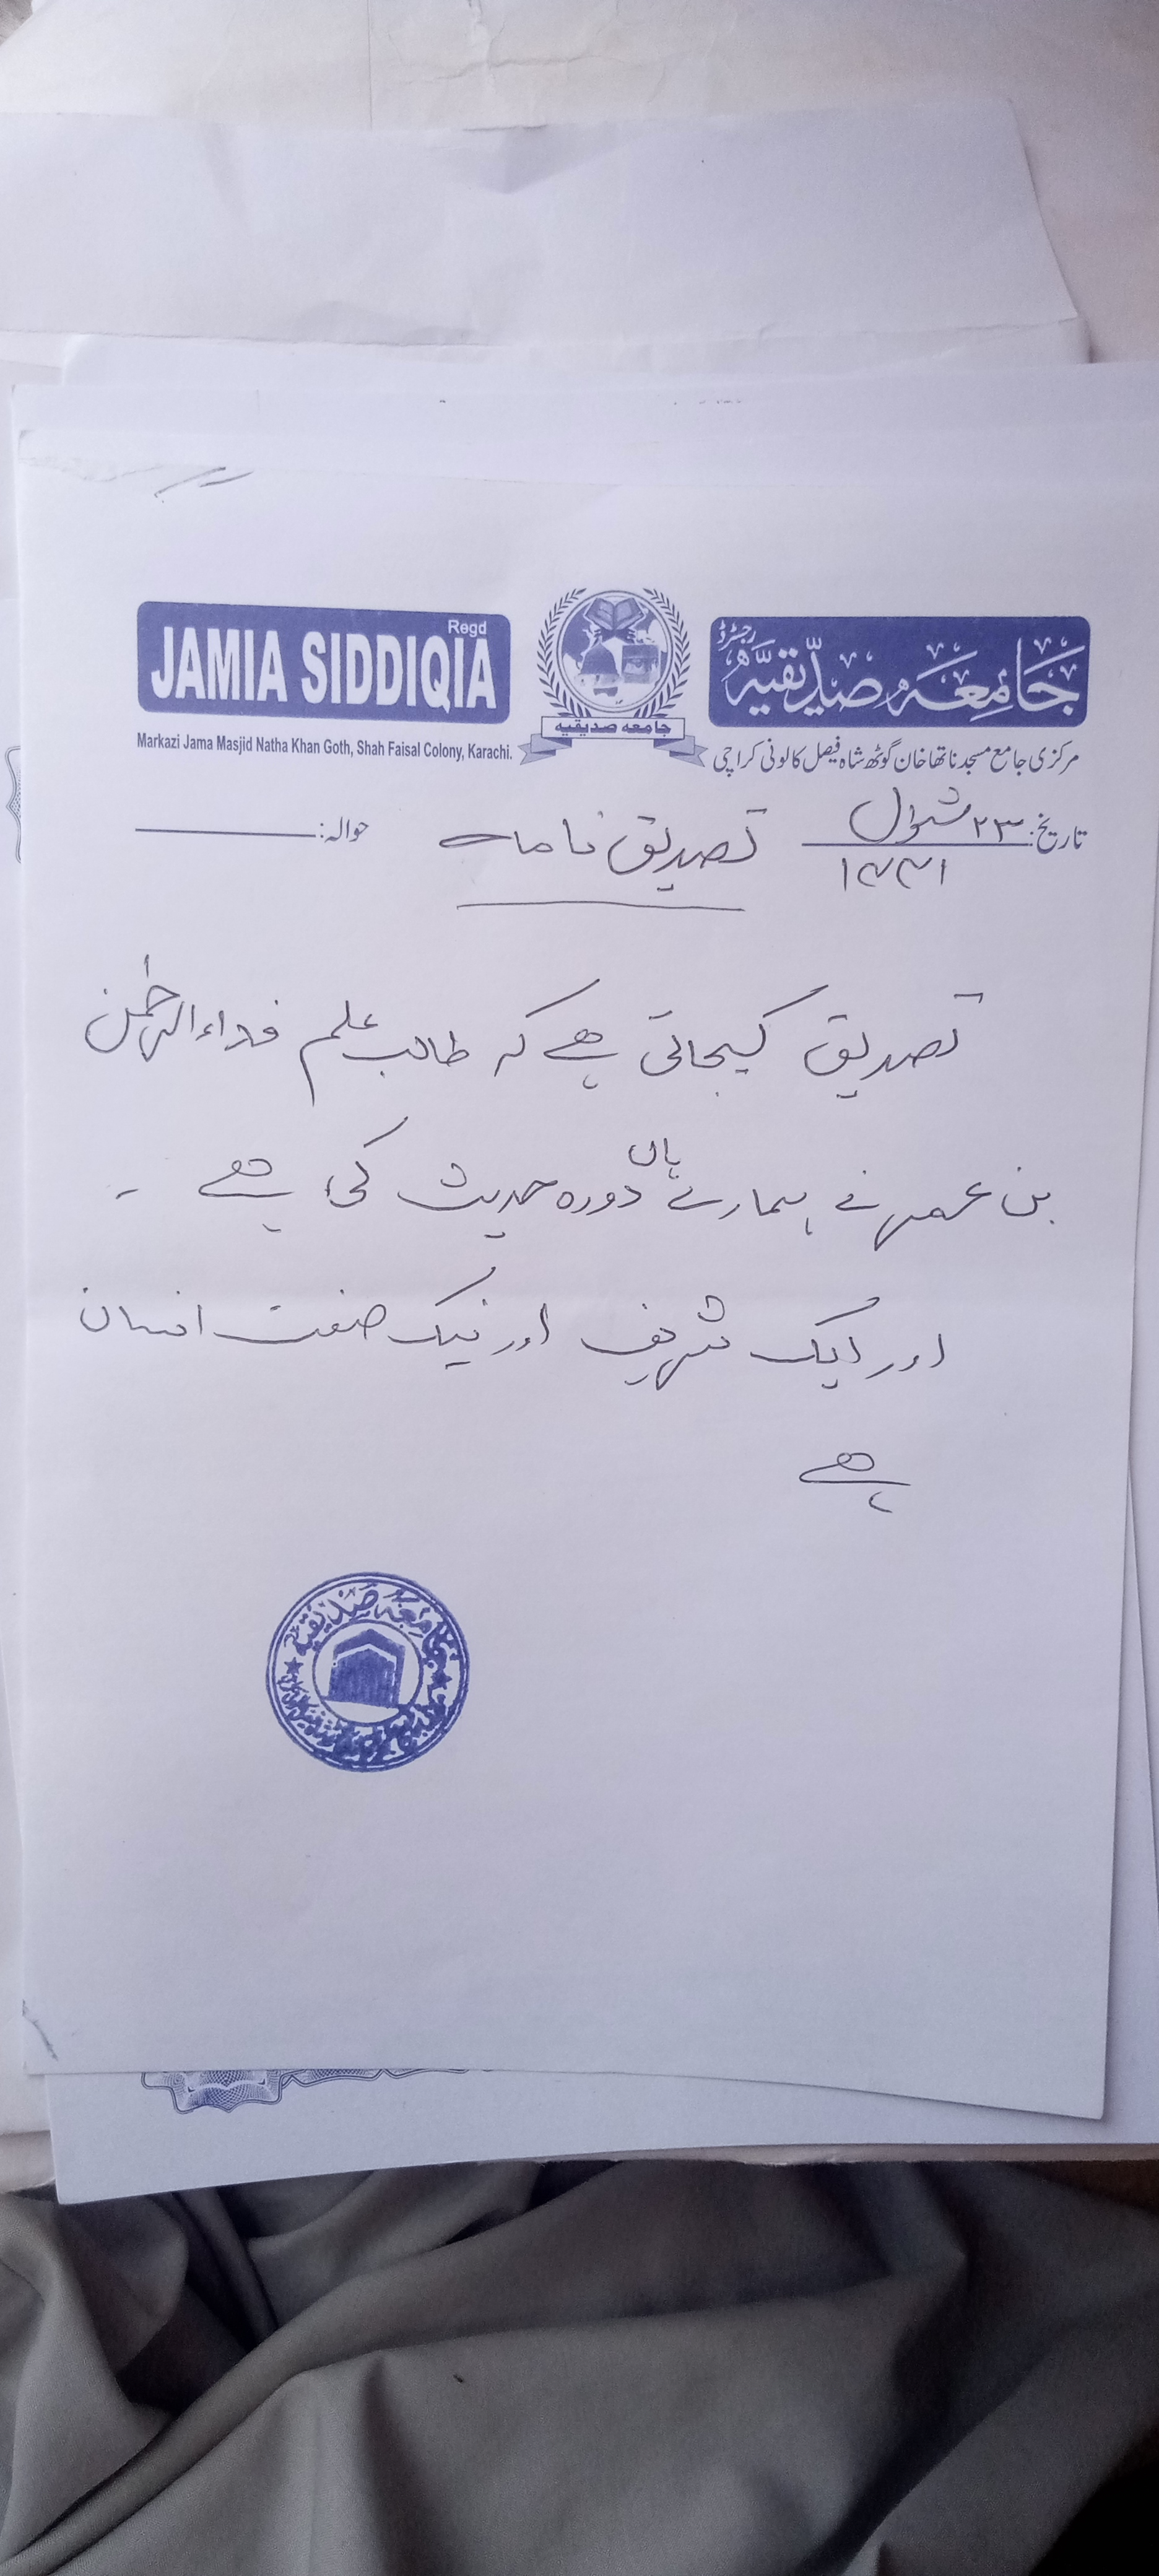 Regd
JAMIA SIDDIQIA
Markazi Jama Masjid Natha Khan Goth, Shah Faisal Colony, Karachi.
جامعہ صدیقیہ
جَامِعَہ صدِّیقیَّہ رجسٹرڈ
مرکزی جامع مسجد ناتھا خان گوٹھ شاہ فیصل کالونی کراچی
تاریخ: ۲۳ شوال
۱۴۴۱
تصدیق نامہ
حوالہ:
تصدیق کیجاتی ہے کہ طالب علم فداء الرحمٰن
بن عمر نے ہمارے ہاں دورہ حدیث کی ہے ۔
اور ایک شریف اور نیک صفت انسان
ہے
جامعہ صدیقیہ